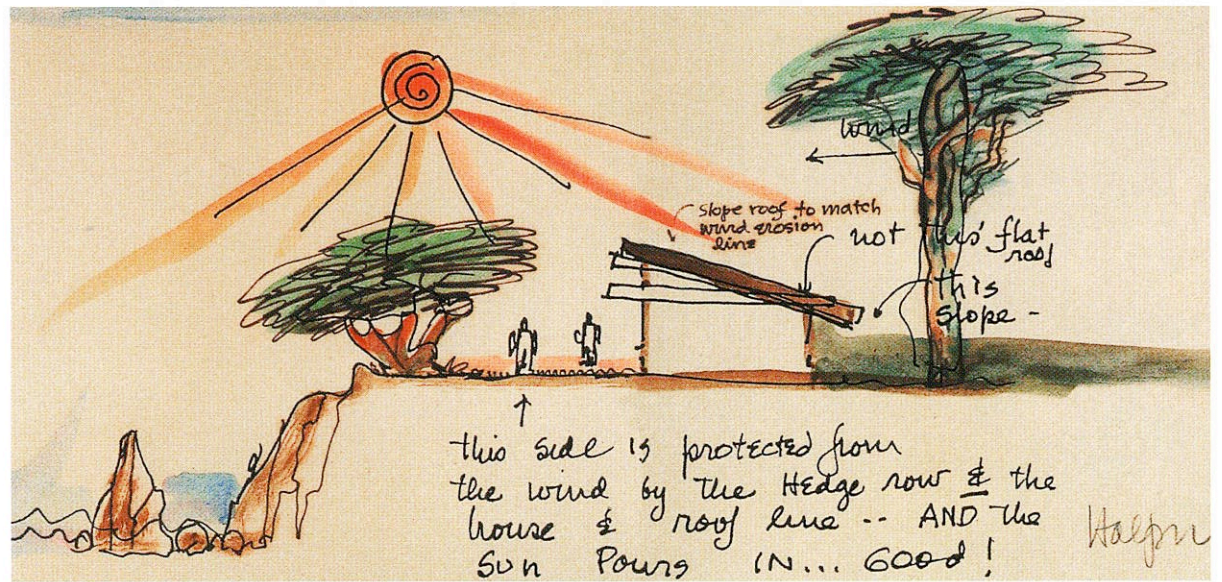 wind
slope roof to match
wind erosion
line
not this' flat
roof
this
slope -
this side is protected from
the wind by the Hedge row & the
house & roof line -- AND the
Sun Pours IN... Good!